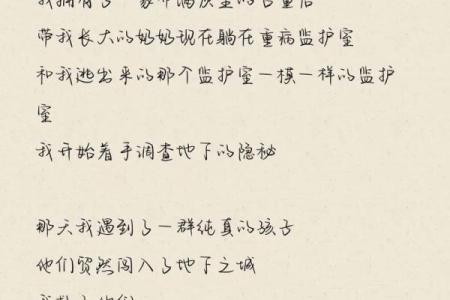 我拥有了一家布满灰尘的古董店
带我长大的奶奶现在躺在重病监护室
和我逃出来的那个监护室一模一样的监护
室
我开始着手调查地下的隐秘
那天我遇到了一群纯真的孩子
他们贸然闯入了地下之城